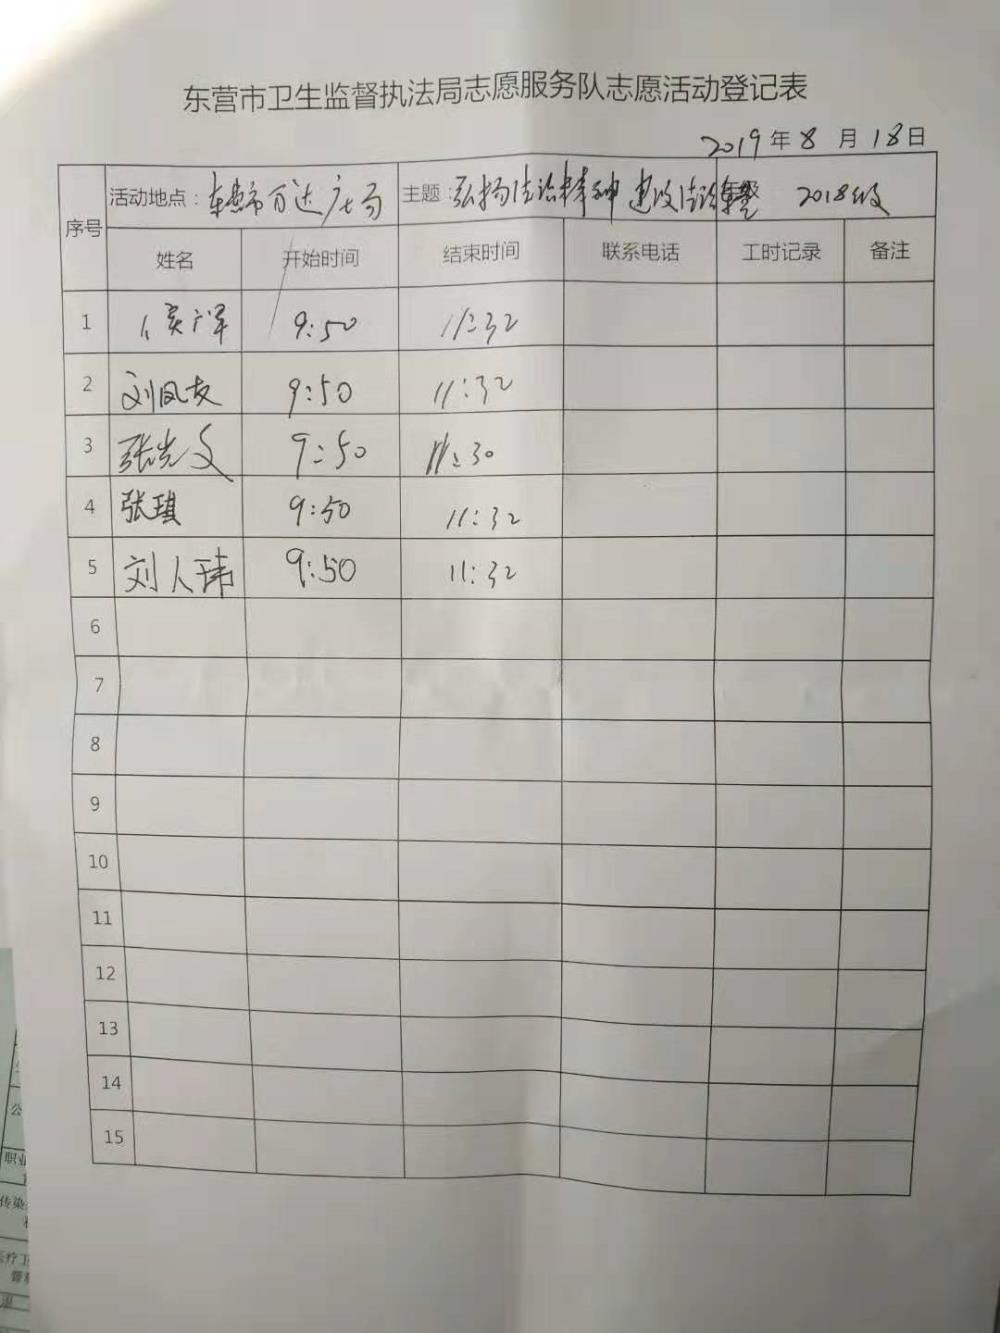 东营市卫生监督执法局志愿服务队志愿活动登记表
2019年8月18日
序号 活动地点：东营市万达广场 主题：弘扬法治精神 建设法治 2018级
姓名 开始时间 结束时间 联系电话 工时记录 备注
1 9:50 11:32
2 刘凤友 9:50 11:32
3 张光文 9:50 11:30
4 张琪 9:50 11:32
5 刘人玮 9:50 11:32
6
7
8
9
10
11
12
13
14
15
公
职业
传染
医疗卫
督